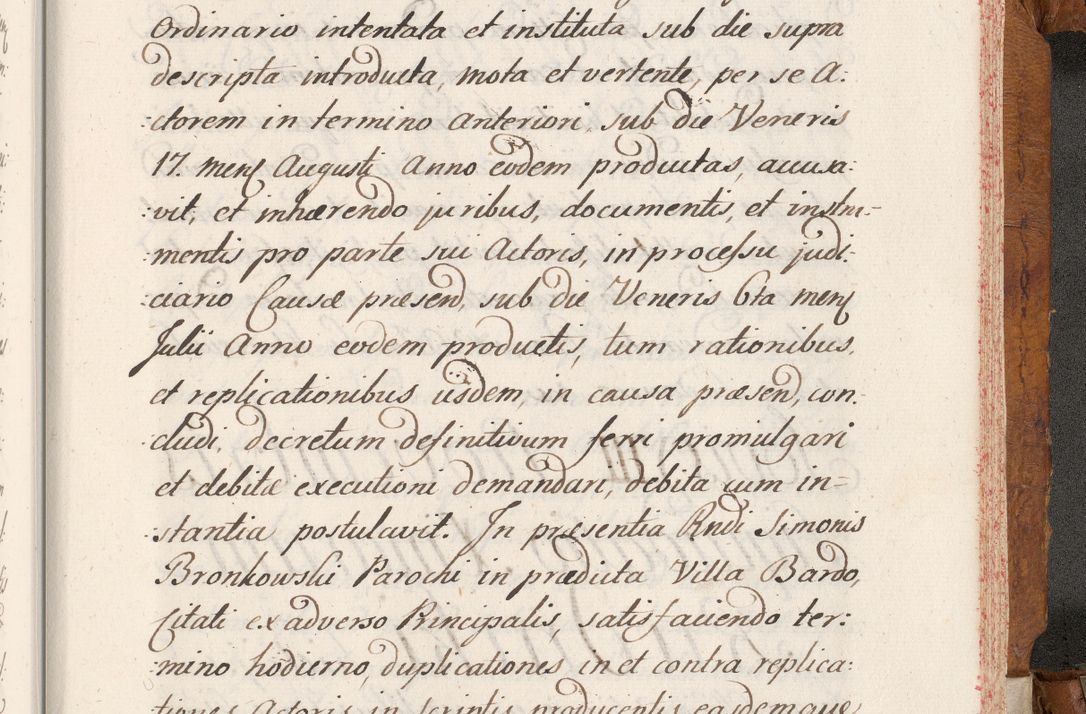 Ordinario intentata et instituta sub die supra
descripta introducta, mota et vertente, per se A:
ctorem in termino anteriori, sub die Veneris
17. mens Augusti Anno eodem productas, accusa:
vit, et inhærendo juribus, documentis, et instru=
:mentis pro parte sui Actoris, in processu judi:
:ciario Causæ præsend, sub die Veneris 6ta mens
Julii Anno eodem productis, tum rationibus,
et replicationibus iisdem, in causa præsend, con:
cludi, decretum definitivum ferri promulgari
et debitæ executioni demandari, debita cum in=
:stantia postulavit. In præsentia Rndi Simonis
Bronkowski Parochi in prædicta Villa Bardo,
Citati ex adverso Principalis, satisfaciendo ter:
:mino hodierno, duplicationes in et contra replica:
tiones Actoris in scriptis producentis easdemque